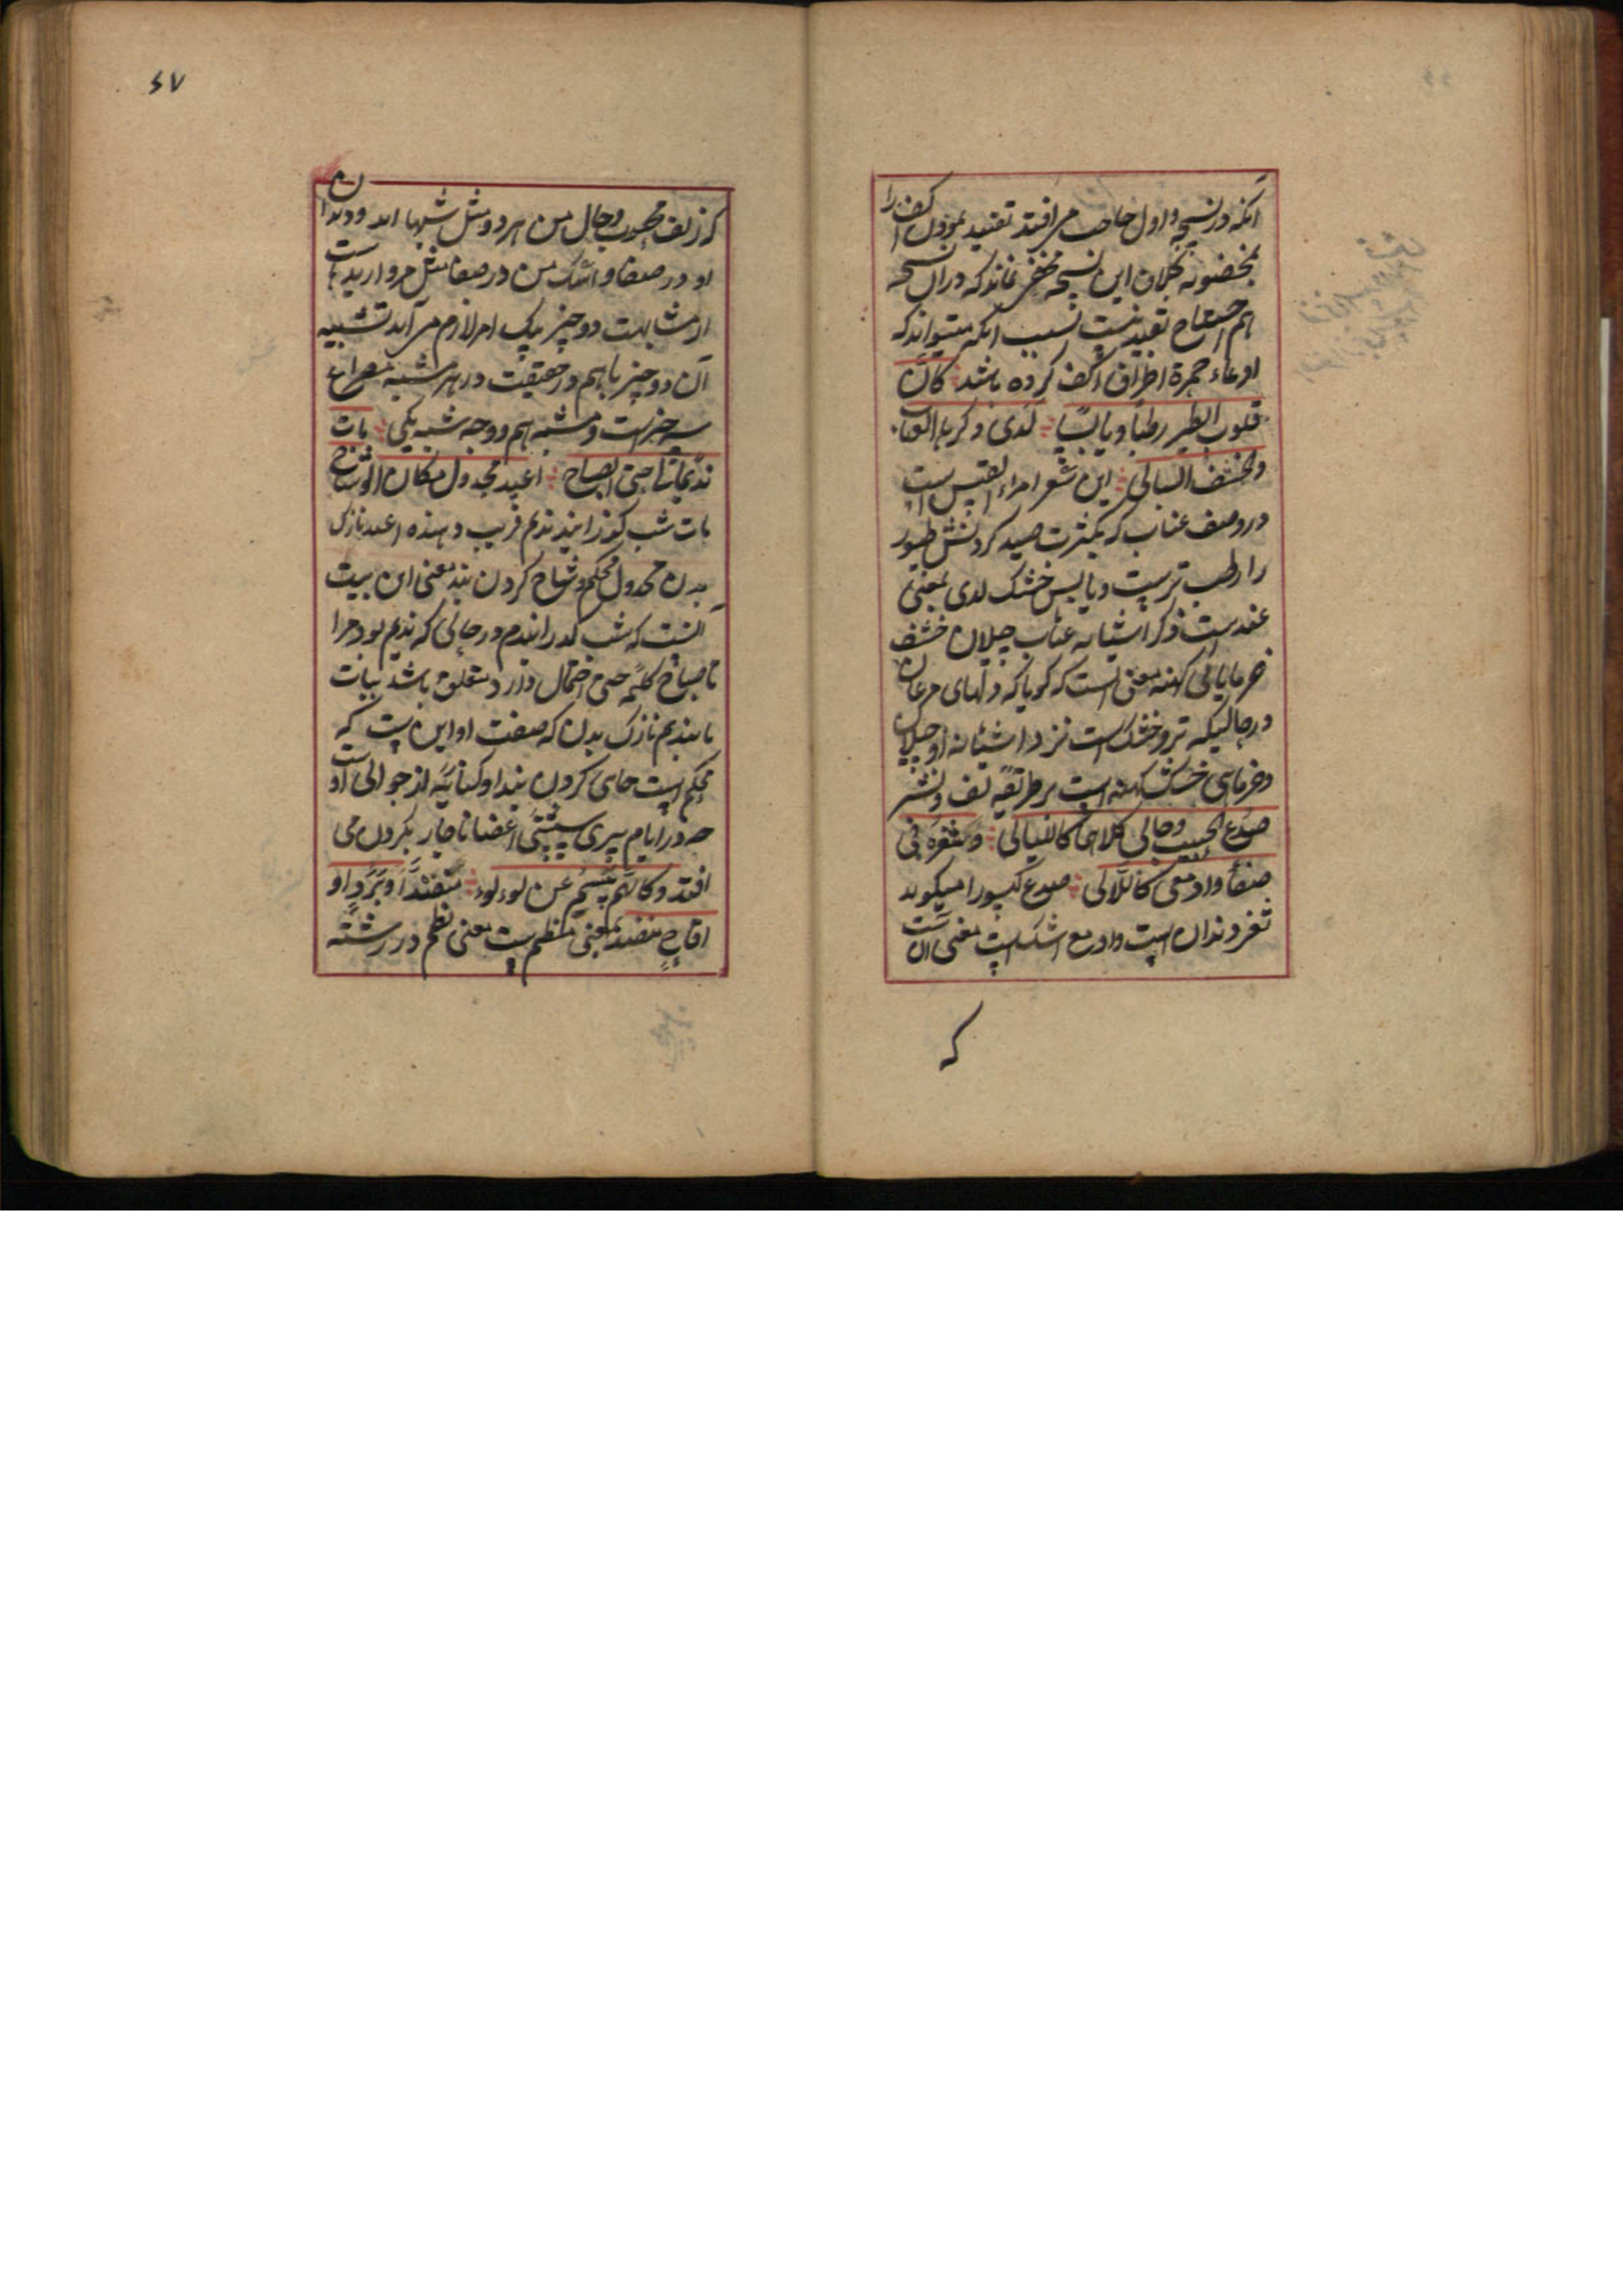 آنکه در نسخه اول حاجت می افتد تقیید نمودن کف را
بمخضوبه بخلاف این نسخه مخفی نماند که دران نسخه
هم احتیاج تقیید نیست بسبب آنکه میتواند که
ادعاء حمرة اطراف اکف کرده باشد کانّ
قلوب الطیر رطبا و یابسا لدی وکرها العناب
والحشف البالی این شعر امراء القیس است
در وصف عقاب که بکثرت صید کردنش طیور
را رطب ترست و یابس خشک لدی بمعنی
عند است وکر اشیانه عناب جیلان حشف
خرمای بالی کهنه معنی انست که گویا که دلهای مرغان
در حالیکه تر و خشک است نزد اشیانه او جیلان
و خرمای خشک کهنه است بر طریقه لف و نشر
صدغ الحبیب و حالی کلاهما کاللیالی و ثغره فی
صفاء و ادمعی کاللآلی صدغ گیسو را میگویند
ثغر دندان است و ادمع اشک است معنی ان ست
که
٤٧
که زلف محبوب و حال من هر دو مثل شبها اند و دندان
او در صفا و اشک من در صفا مثل مروارید است
از مشابهت دو چیز بیک امر لازم می آید تشبیه
آن دو چیز باهم در حقیقت در هر مشبه مصراع
سه چیز است و مشبه بهم و وجه شبه یکی بات
ندیما لی حتی الصباح اغید مجدول مکان الوشاح
بات شب گذرانید ندیم قریب دهنده اغید نازک
بدن مجدول محکم وشاح کردن بند معنی این بیت
آنست که شب گذرانیدم در حالی که ندیم بود مرا
تا صباح کلمه حتی احتمال دارد متعلق باشد ببات
یا بندیم نازک بدن که صفت او این ست که
محکم است جای کردن بند او کنایه از جوانی او ست
چه در ایام پیری سستی اعضا ناچار بکردن می
افتد و کانّما یبسم عن لؤلؤ منضد او برد او
اقاح منضد بمعنی منظم ست یعنی نظم در رشته